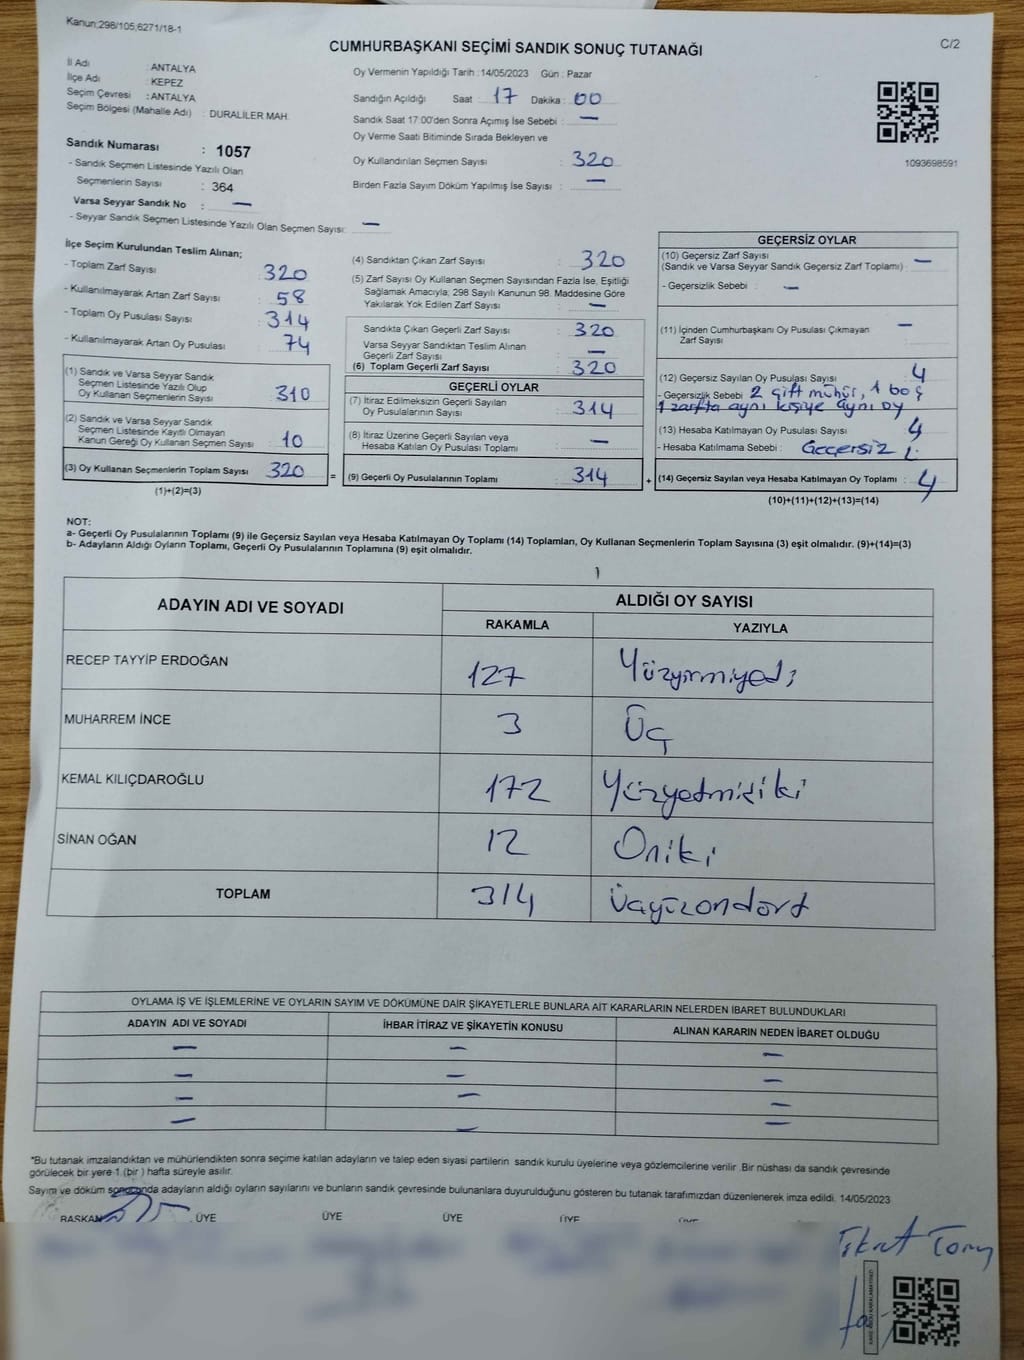 Kanun:298/105,6271/18-1
C/2
CUMHURBAŞKANI SEÇİMİ SANDIK SONUÇ TUTANAĞI
İl Adı : ANTALYA
İlçe Adı : KEPEZ
Seçim Çevresi : ANTALYA
Seçim Bölgesi (Mahalle Adı) : DURALİLER MAH.
Sandık Numarası : 1057
- Sandık Seçmen Listesinde Yazılı Olan
Seçmenlerin Sayısı : 364
Varsa Seyyar Sandık No : —
- Seyyar Sandık Seçmen Listesinde Yazılı Olan Seçmen Sayısı: —
Oy Vermenin Yapıldığı Tarih : 14/05/2023 Gün : Pazar
Sandığın Açıldığı Saat : 17 Dakika : 00
Sandık Saat 17:00'den Sonra Açımış İse Sebebi : —
Oy Verme Saati Bitiminde Sırada Bekleyen ve
Oy Kullandırılan Seçmen Sayısı : 320
Birden Fazla Sayım Döküm Yapılmış İse Sayısı : —
1093698591
İlçe Seçim Kurulundan Teslim Alınan;
- Toplam Zarf Sayısı : 320
- Kullanılmayarak Artan Zarf Sayısı : 58
- Toplam Oy Pusulası Sayısı : 314
- Kullanılmayarak Artan Oy Pusulası : 74
(1) Sandık ve Varsa Seyyar Sandık
Seçmen Listesinde Yazılı Olup
Oy Kullanan Seçmenlerin Sayısı : 310
(2) Sandık ve Varsa Seyyar Sandık
Seçmen Listesinde Kayıtlı Olmayan
Kanun Gereği Oy Kullanan Seçmen Sayısı : 10
(3) Oy Kullanan Seçmenlerin Toplam Sayısı : 320
(1)+(2)=(3)
(4) Sandıktan Çıkan Zarf Sayısı : 320
(5) Zarf Sayısı Oy Kullanan Seçmen Sayısından Fazla İse, Eşitliği
Sağlamak Amacıyla; 298 Sayılı Kanunun 98. Maddesine Göre
Yakılarak Yok Edilen Zarf Sayısı : —
Sandıkta Çıkan Geçerli Zarf Sayısı : 320
Varsa Seyyar Sandıktan Teslim Alınan
Geçerli Zarf Sayısı : —
(6) Toplam Geçerli Zarf Sayısı : 320
GEÇERLİ OYLAR
(7) İtiraz Edilmeksizin Geçerli Sayılan
Oy Pusulalarının Sayısı : 314
(8) İtiraz Üzerine Geçerli Sayılan veya
Hesaba Katılan Oy Pusulası Toplamı : —
= (9) Geçerli Oy Pusulalarının Toplamı : 314
GEÇERSİZ OYLAR
(10) Geçersiz Zarf Sayısı
(Sandık ve Varsa Seyyar Sandık Geçersiz Zarf Toplamı) : —
- Geçersizlik Sebebi : —
(11) İçinden Cumhurbaşkanı Oy Pusulası Çıkmayan
Zarf Sayısı : —
(12) Geçersiz Sayılan Oy Pusulası Sayısı : 4
- Geçersizlik Sebebi : 2 çift mühür, 1 boş
1 zarfta aynı kişiye aynı oy
(13) Hesaba Katılmayan Oy Pusulası Sayısı : 4
- Hesaba Katılmama Sebebi : Geçersiz
+ (14) Geçersiz Sayılan veya Hesaba Katılmayan Oy Toplamı : 4
(10)+(11)+(12)+(13)=(14)
NOT:
a- Geçerli Oy Pusulalarının Toplamı (9) ile Geçersiz Sayılan veya Hesaba Katılmayan Oy Toplamı (14) Toplamları, Oy Kullanan Seçmenlerin Toplam Sayısına (3) eşit olmalıdır. (9)+(14)=(3)
b- Adayların Aldığı Oyların Toplamı, Geçerli Oy Pusulalarının Toplamına (9) eşit olmalıdır.
ADAYIN ADI VE SOYADI ALDIĞI OY SAYISI
RAKAMLA YAZIYLA
RECEP TAYYİP ERDOĞAN 127 Yüzyirmiyedi
MUHARREM İNCE 3 Üç
KEMAL KILIÇDAROĞLU 172 Yüzyetmişiki
SİNAN OĞAN 12 Oniki
TOPLAM 314 Üçyüzondört
OYLAMA İŞ VE İŞLEMLERİNE VE OYLARIN SAYIM VE DÖKÜMÜNE DAİR ŞİKAYETLERLE BUNLARA AİT KARARLARIN NELERDEN İBARET BULUNDUKLARI
ADAYIN ADI VE SOYADI İHBAR İTİRAZ VE ŞİKAYETİN KONUSU ALINAN KARARIN NEDEN İBARET OLDUĞU
— — —
— — —
— — —
— — —
*Bu tutanak imzalandıktan ve mühürlendikten sonra seçime katılan adayların ve talep eden siyasi partilerin sandık kurulu üyelerine veya gözlemcilerine verilir. Bir nüshası da sandık çevresinde
görülecek bir yere 1 (bir) hafta süreyle asılır.
Sayım ve döküm sonucunda adayların aldığı oyların sayılarını ve bunların sandık çevresinde bulunanlara duyurulduğunu gösteren bu tutanak tarafımızdan düzenlenerek imza edildi. 14/05/2023
BAŞKAN ÜYE ÜYE ÜYE ÜYE ÜYE